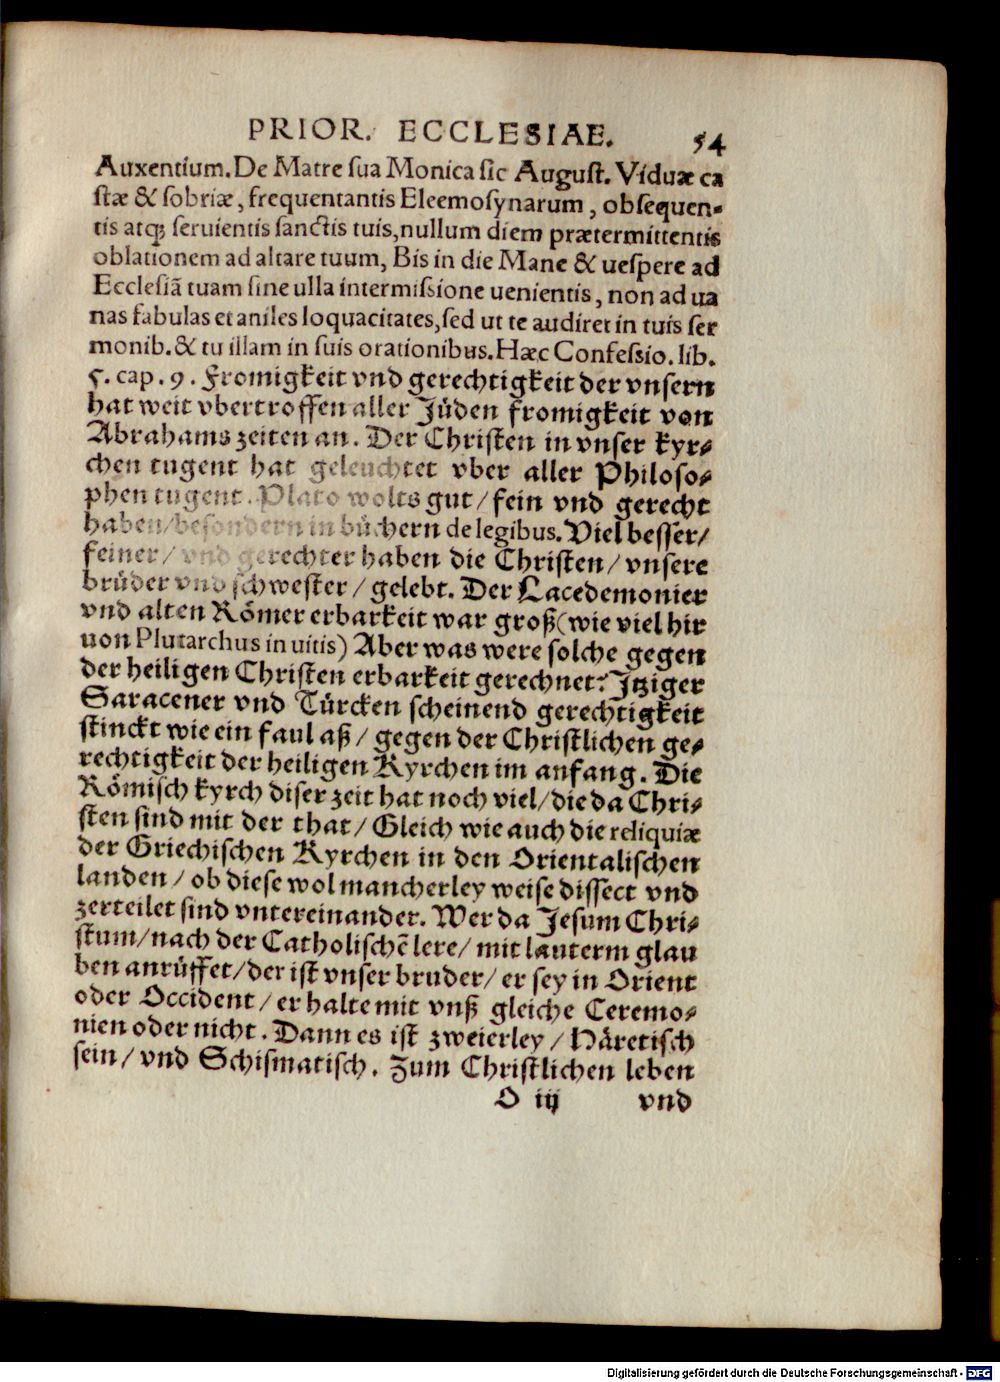 PRIOR. ECCLESIAE. 54
Auxentium. De Matre sua Monica sic August. Viduæ ca
stæ & sobriæ, frequentantis Eleemosynarum, obsequen-
tis atqꝫ seruientis sanctis tuis, nullum diem prætermittentis
oblationem ad altare tuum, Bis in die Mane & uespere ad
Ecclesiã tuam sine ulla intermissione uenientis, non ad ua
nas fabulas et aniles loquacitates, sed ut te audiret in tuis ser
monib. & tu illam in suis orationibus. Hæc Confessio. lib.
5. cap. 9. Fromigkeit vnd gerechtigkeit der vnsern
hat weit vbertroffen aller Jüden fromigkeit von
Abrahams zeiten an. Der Christen in vnser kyr-
chen tugent hat geleuchtet vber aller Philoso-
phen tugent. Plato wolts gut/ fein vnd gerecht
haben/ besondern in büchern de legibus. Viel besser/
feiner/ vnd gerechter haben die Christen/ vnsere
brüder vnd schwester/ gelebt. Der Lacedemonier
vnd alten Römer erbarkeit war groß (wie viel hir
von Plutarchus in uitis) Aber was were solche gegen
der heiligen Christen erbarkeit gerechnet? Jtziger
Saracener vnd Türcken scheinend gerechtigkeit
stinckt wie ein faul aß/ gegen der Christlichen ge-
rechtigkeit der heiligen Kyrchen im anfang. Die
Römisch kyrch diser zeit hat noch viel/ die da Chri-
sten sind mit der that/ Gleich wie auch die reliquiæ
der Griechischen Kyrchen in den Orientalischen
landen/ ob diese wol mancherley weise dissect vnd
zerteilet sind vntereinander. Wer da Jesum Chri-
stum/ nach der Catholischẽ lere/ mit lauterm glau
ben anrüffet/ der ist vnser bruder/ er sey in Orient
oder Occident/ er halte mit vnß gleiche Ceremo-
nien oder nicht. Dann es ist zweierley/ Häretisch
sein/ vnd Schismatisch. Zum Christlichen leben
O iij vnd
Digitalisierung gefördert durch die Deutsche Forschungsgemeinschaft - DFG